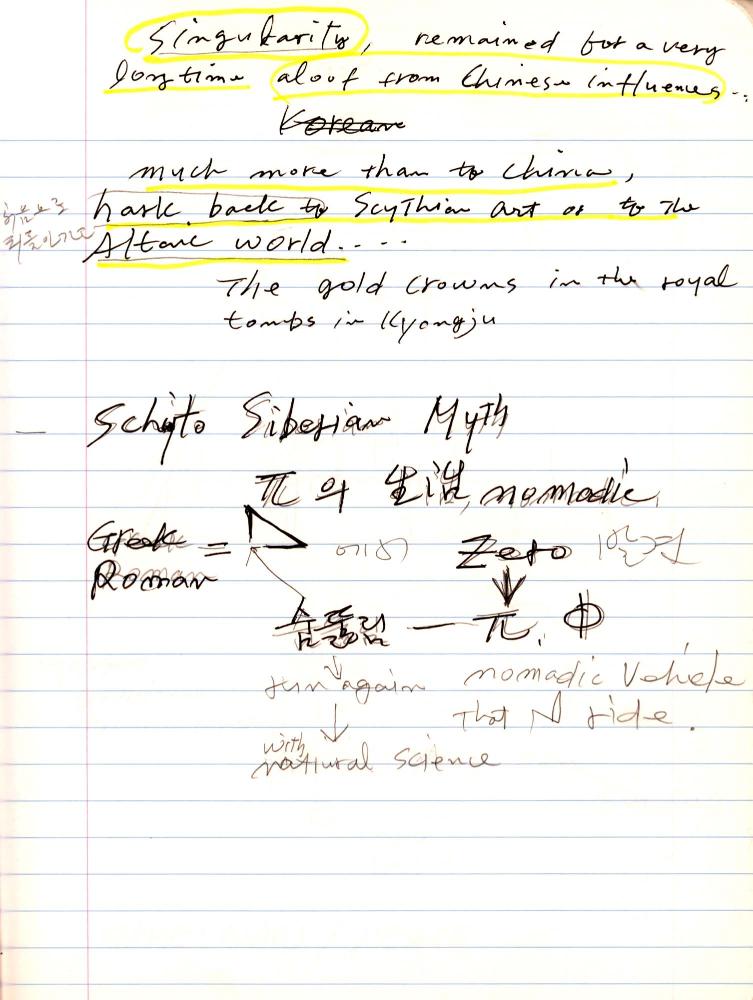 Singularity, remained for a very
long time aloof from Chinese influences...
Korean
much more than to China,
hark back to Scythian art or to The
Altaic world.....
The gold crowns in the royal
tombs in Kyongju
— Schyto Siberian Myth
π의 生活, nomadic
Greek = 에서 Zero 발견
Roman
숨뚤림 — π, Φ
run again nomadic Vehicle
That N ride.
with
natural science